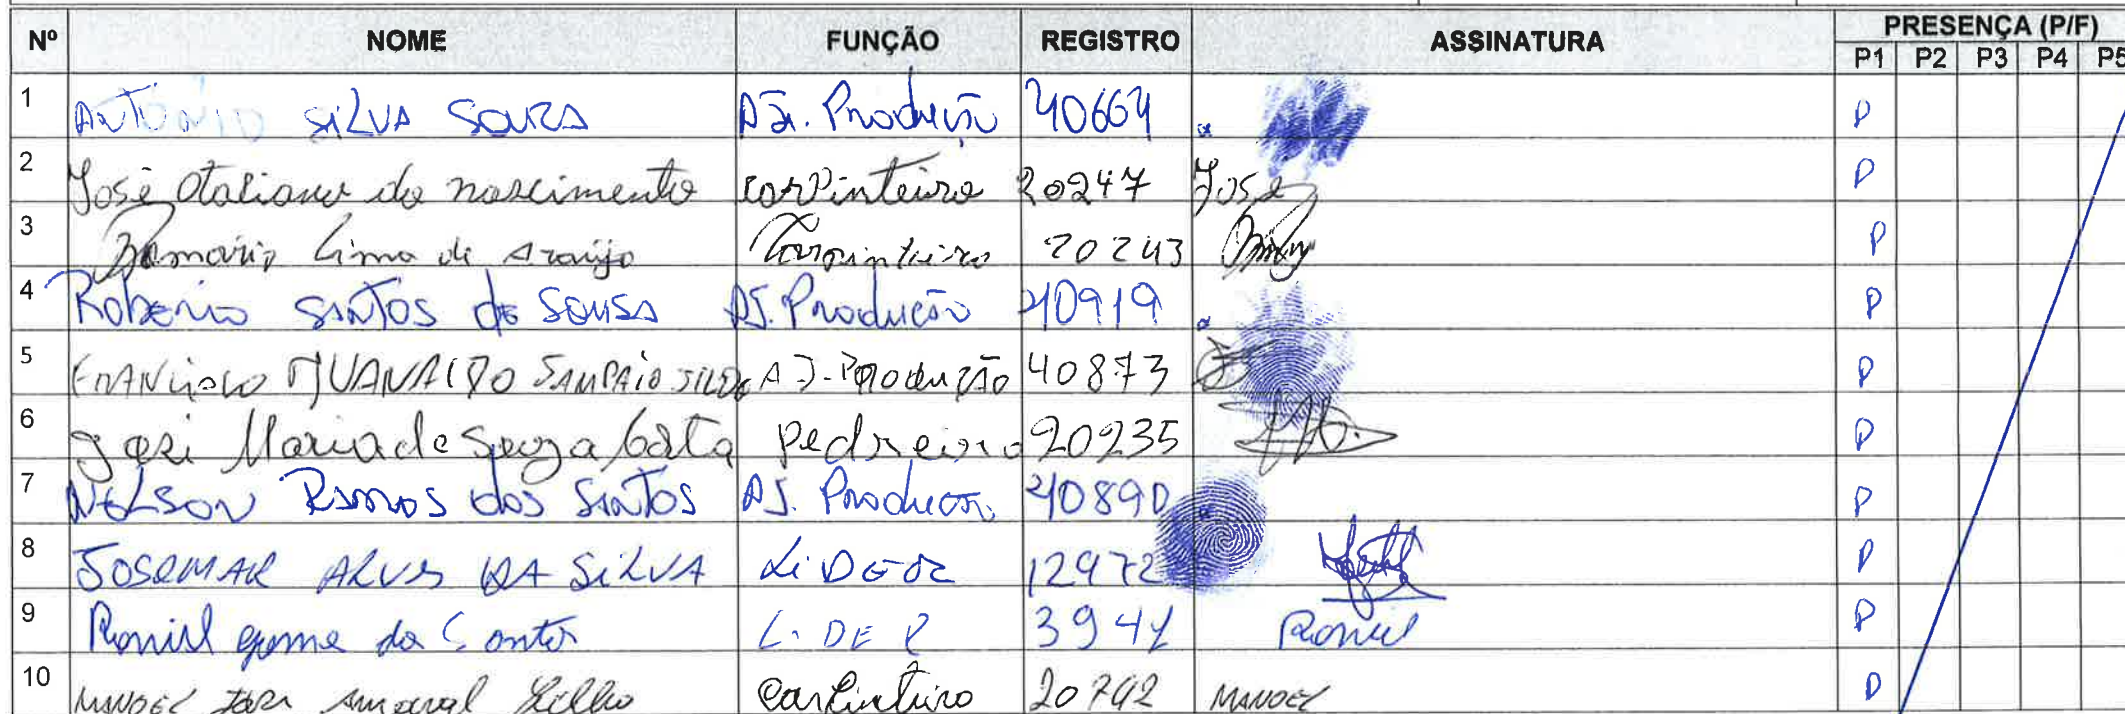 Nº NOME FUNÇÃO REGISTRO ASSINATURA PRESENÇA (P/F)
P1 P2 P3 P4 P5
1 ANTONIO SILVA SOUZA AJ. Produção 40664 P
2 José Otaliano do nascimento carpinteiro 20247 José P
3 Lima de Araújo Carpinteiro 20243 P
4 Roberio SANTOS de SOUSA AJ. Produção 40919 P
5 FRANCISCO SAMPAIO AJ-PRODUÇÃO 40873 P
6 José Maria de Souza pedreiro 20235 P
7 NELSON RAMOS dos SANTOS AJ. Produção 40890 P
8 JOSEMAR ALVES DA SILVA LiDER 12972 P
9 Roniel gome do Santos LiDER 394 Roniel P
10 MANOEL José Amaral Filho Carpinteiro 20742 MANOEL P